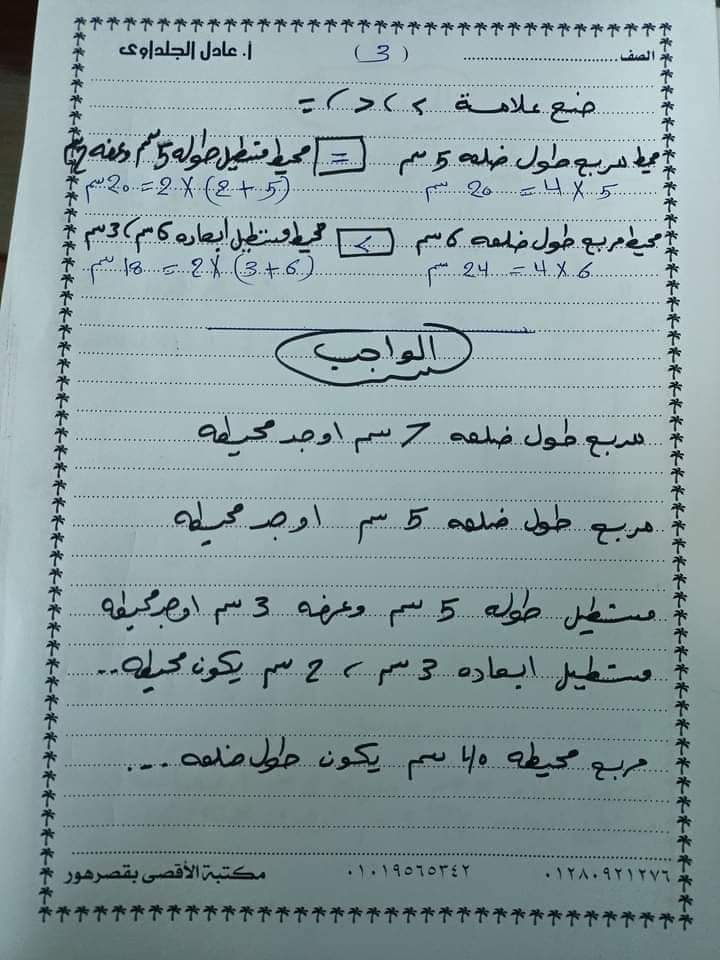 الصف ........ (3) أ. عادل الجلداوى
ضع علامة > ، < ، =
محيط مربع طول ضلعه 5 سم = محيط مستطيل طوله 5 سم وعرضه 2
5 × 4 = 20 سم (5 + 2) × 2 = 20 سم
محيط مربع طول ضلعه 6 سم > محيط مستطيل ابعاده 6 سم ، 3 سم
6 × 4 = 24 سم (6 + 3) × 2 = 18 سم
الواجب
مربع طول ضلعه 7 سم اوجد محيطه
مربع طول ضلعه 5 سم اوجد محيطه
مستطيل طوله 5 سم وعرضه 3 سم اوجد محيطه
مستطيل ابعاده 3 سم ، 2 سم يكون محيطه ..
مربع محيطه 40 سم يكون طول ضلعه ...
٠١٢٨٠٩٢١٢٧٦ ٠١٠١٩٥٦٥٣٤٢ مكتبة الأقصى بقصرهور